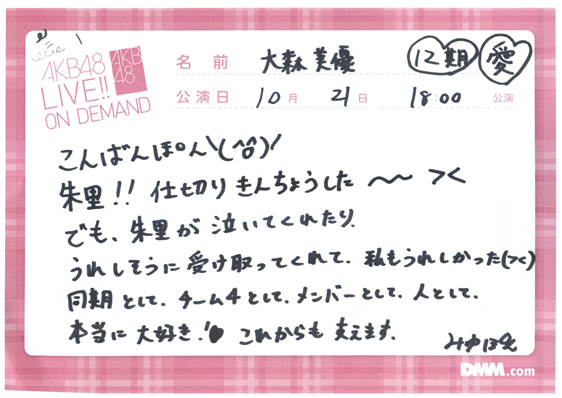 AKB48
LIVE!!
ON DEMAND
AKB
48
名前 大森美優 12期 愛
公演日 10月 21日 18:00 公演
こんばんぽん\(^o^)/
朱里!! 仕切りきんちょうした〜〜 ><
でも、朱里が泣いてくれたり、
うれしそうに受け取ってくれて、私もうれしかった(><)
同期として、チーム4として、メンバーとして、人として、
本当に大好き!♥ これからも支えます。
みゆぽん
DMM.com